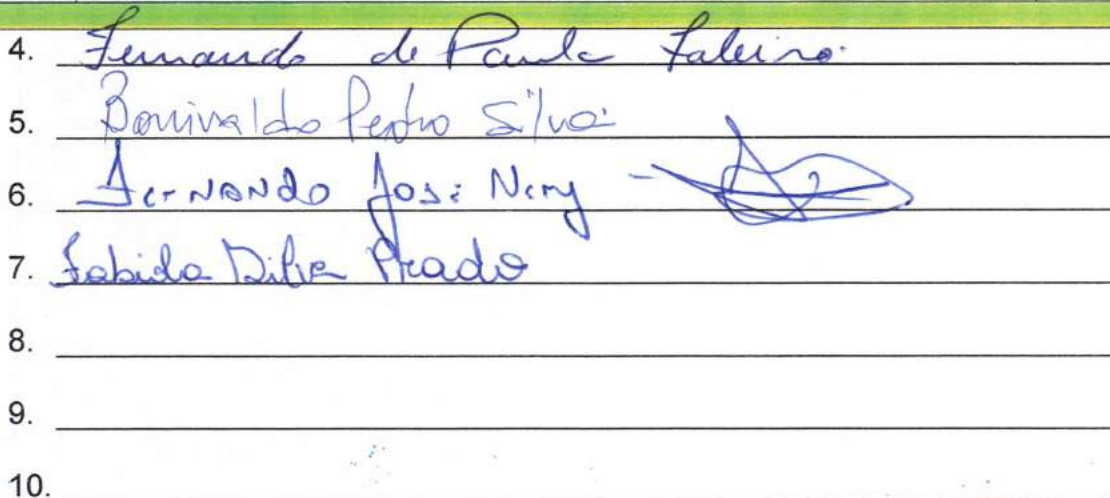 4. Fernando de Paula Faleiro
5. Bonivaldo Pedro Silva
6. Fernando José Nery
7. Fabiola Silva Prado
8.
9.
10.